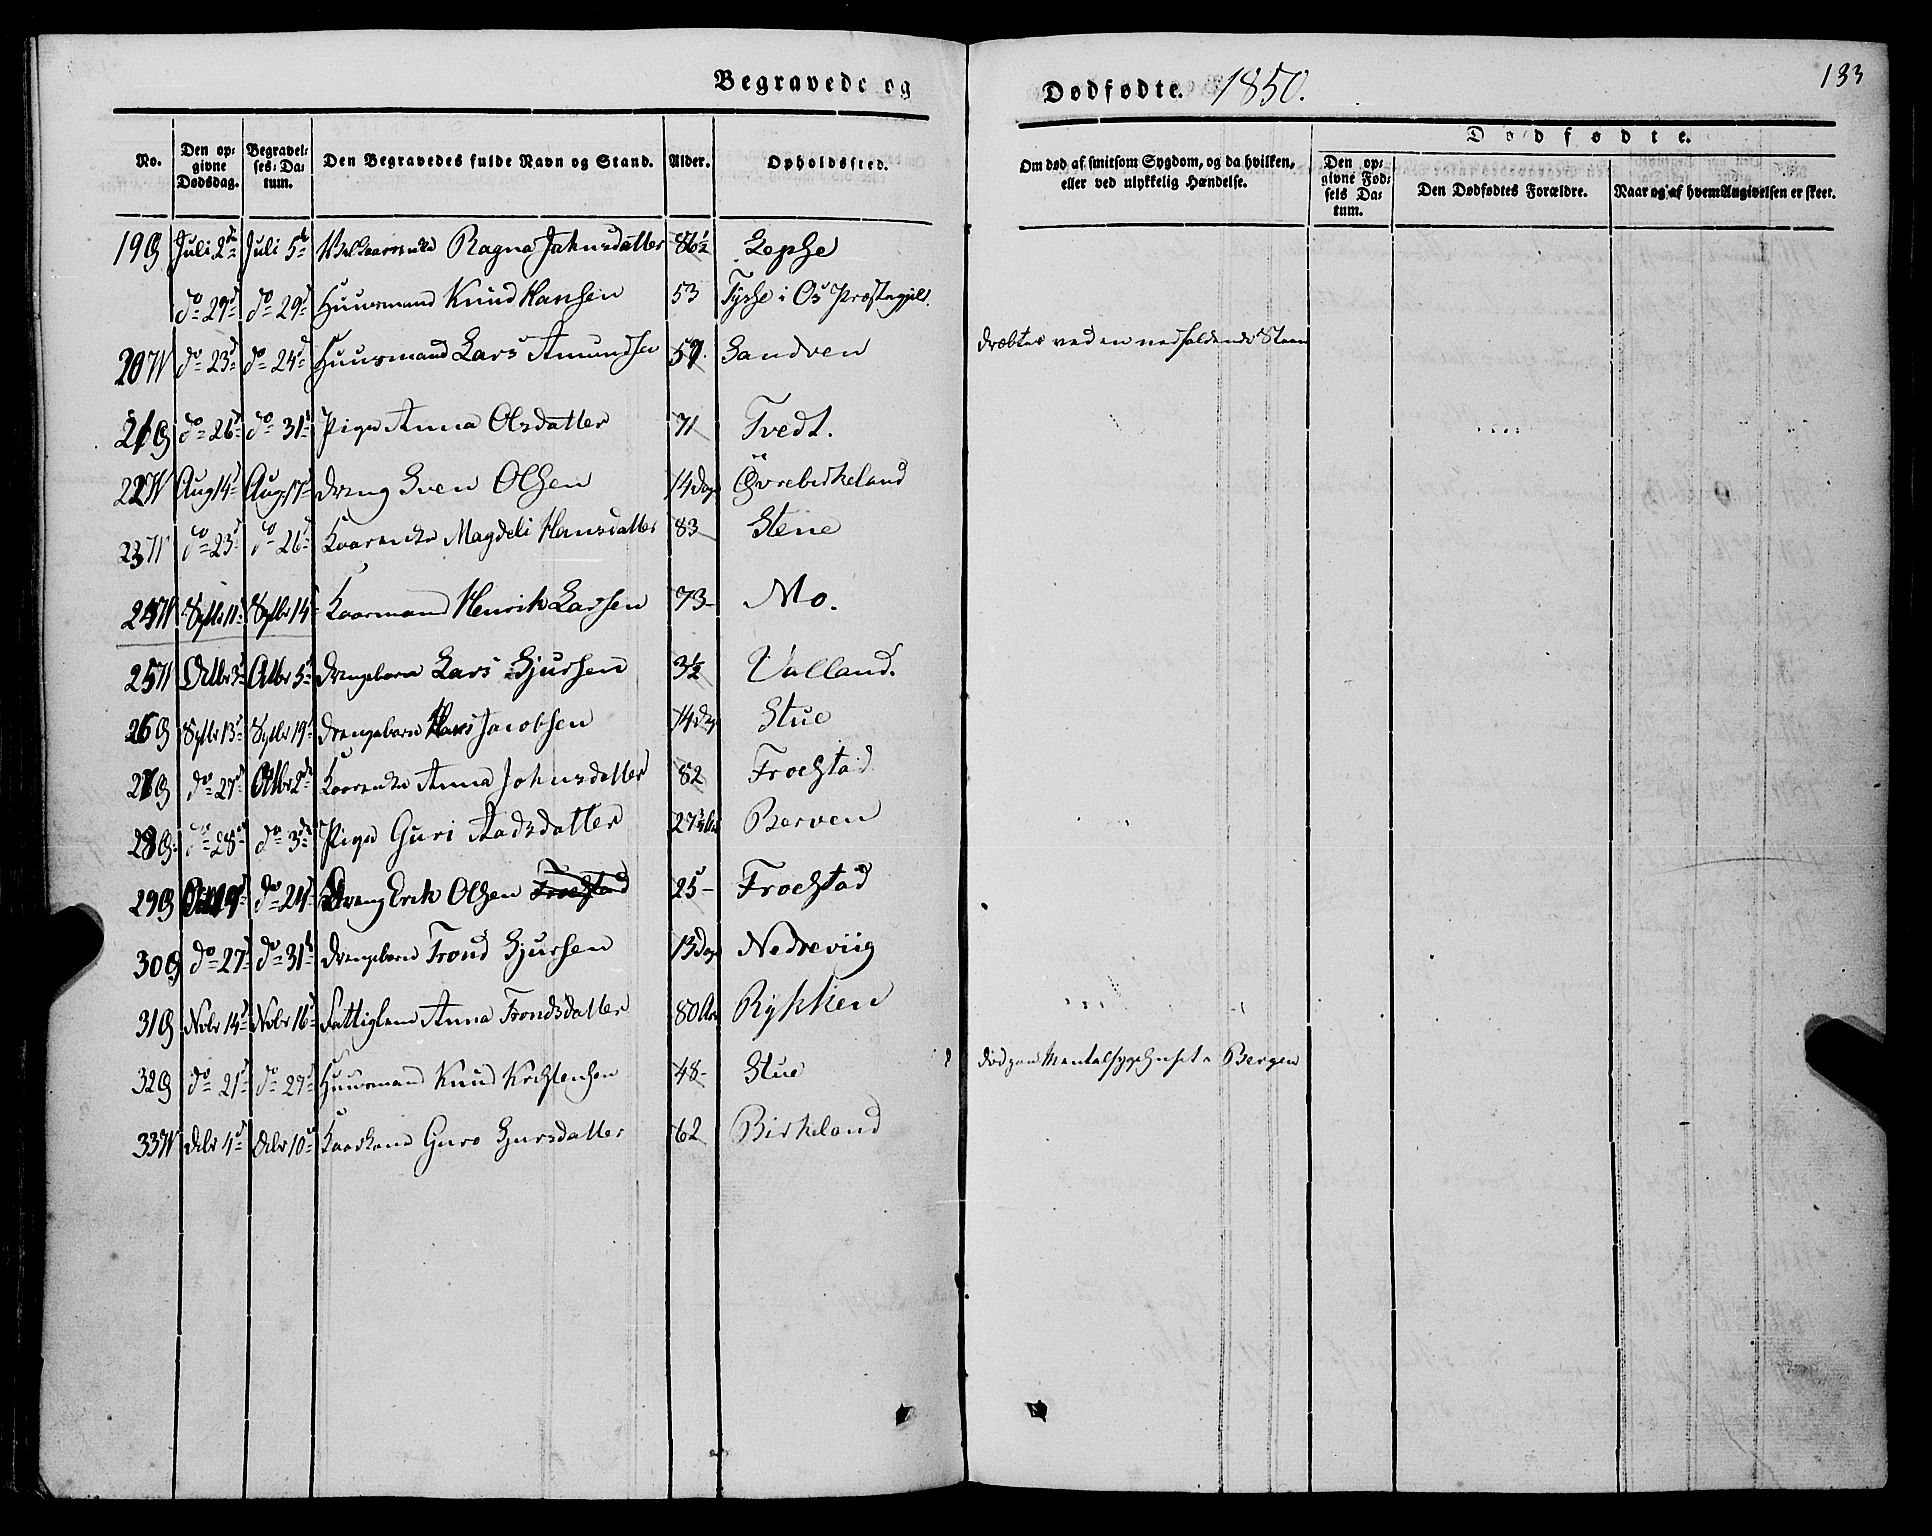 Begravede og
Dødfødte. 1850.
133
No.
Den opgivne Dødsdag.
Begravelses-Datum.
Den Begravedes fulde Navn og Stand.
Alder.
Opholdssted.
Om død af smitsom Sygdom, og da hvilken, eller ved ulykkelig Hændelse.
Dødfødte.
Den opgivne Fødsels Datum.
Den Dødfødtes Forældre.
Naar og af hvem Angivelsen er skeet.
19 G Juli 2d Juli 5d Ragna Johnsdatter 86½ Lepsø
do 29d do 29d Huusmand Knud Hansen 53 Tysse i Os Præstegjeld.
20 W do 23d do 24d Huusmand Lars Amundsen 57. Sandven dræbtes ved en nedfaldende Steen
21 G do 26d do 31d Pige Anna Olsdatter 71 Tvedt.
22 W Aug 14d Aug 17d Dreng Sven Olsen 14 Dage Øvrebirkeland
23 W do 23d do 26d Kaarenke Magdeli Hansdatter 83 Stene
24 W Septbr 11d Septbr 14d Kaarmand Henrik Larsen 73 Mo.
25 W Octbr 3d Octbr 5d Drengebarn Lars Sjursen 3½ Valland.
26 G Septbr 13d Septbr 19d Drengebarn Hans Jacobsen 14 Dage Stue
27 G do 27d Octbr 2d Kaarenke Anna Johnsdatter 82 Froestad
28 G do 28d do 3d Pige Guri Aadsdatter 27 Berven
29 G do 24d Dreng Erik Olsen Froestad 25 Froestad
30 G do 27d do 31d Drengebarn Trond Sjursen 13 Dage Nedreviig
31 G Novbr 14d Novbr 16d Fattiglem Anna Trondsdatter 80 Aar Rykken
32 G do 21d do 27d Huusmand Knud Kristensen 48 Stue død paa Mentalsygehuset i Bergen
33 W Decbr 4d Decbr 10d Kaarkone Guro Sjursdatter 62 Birkeland